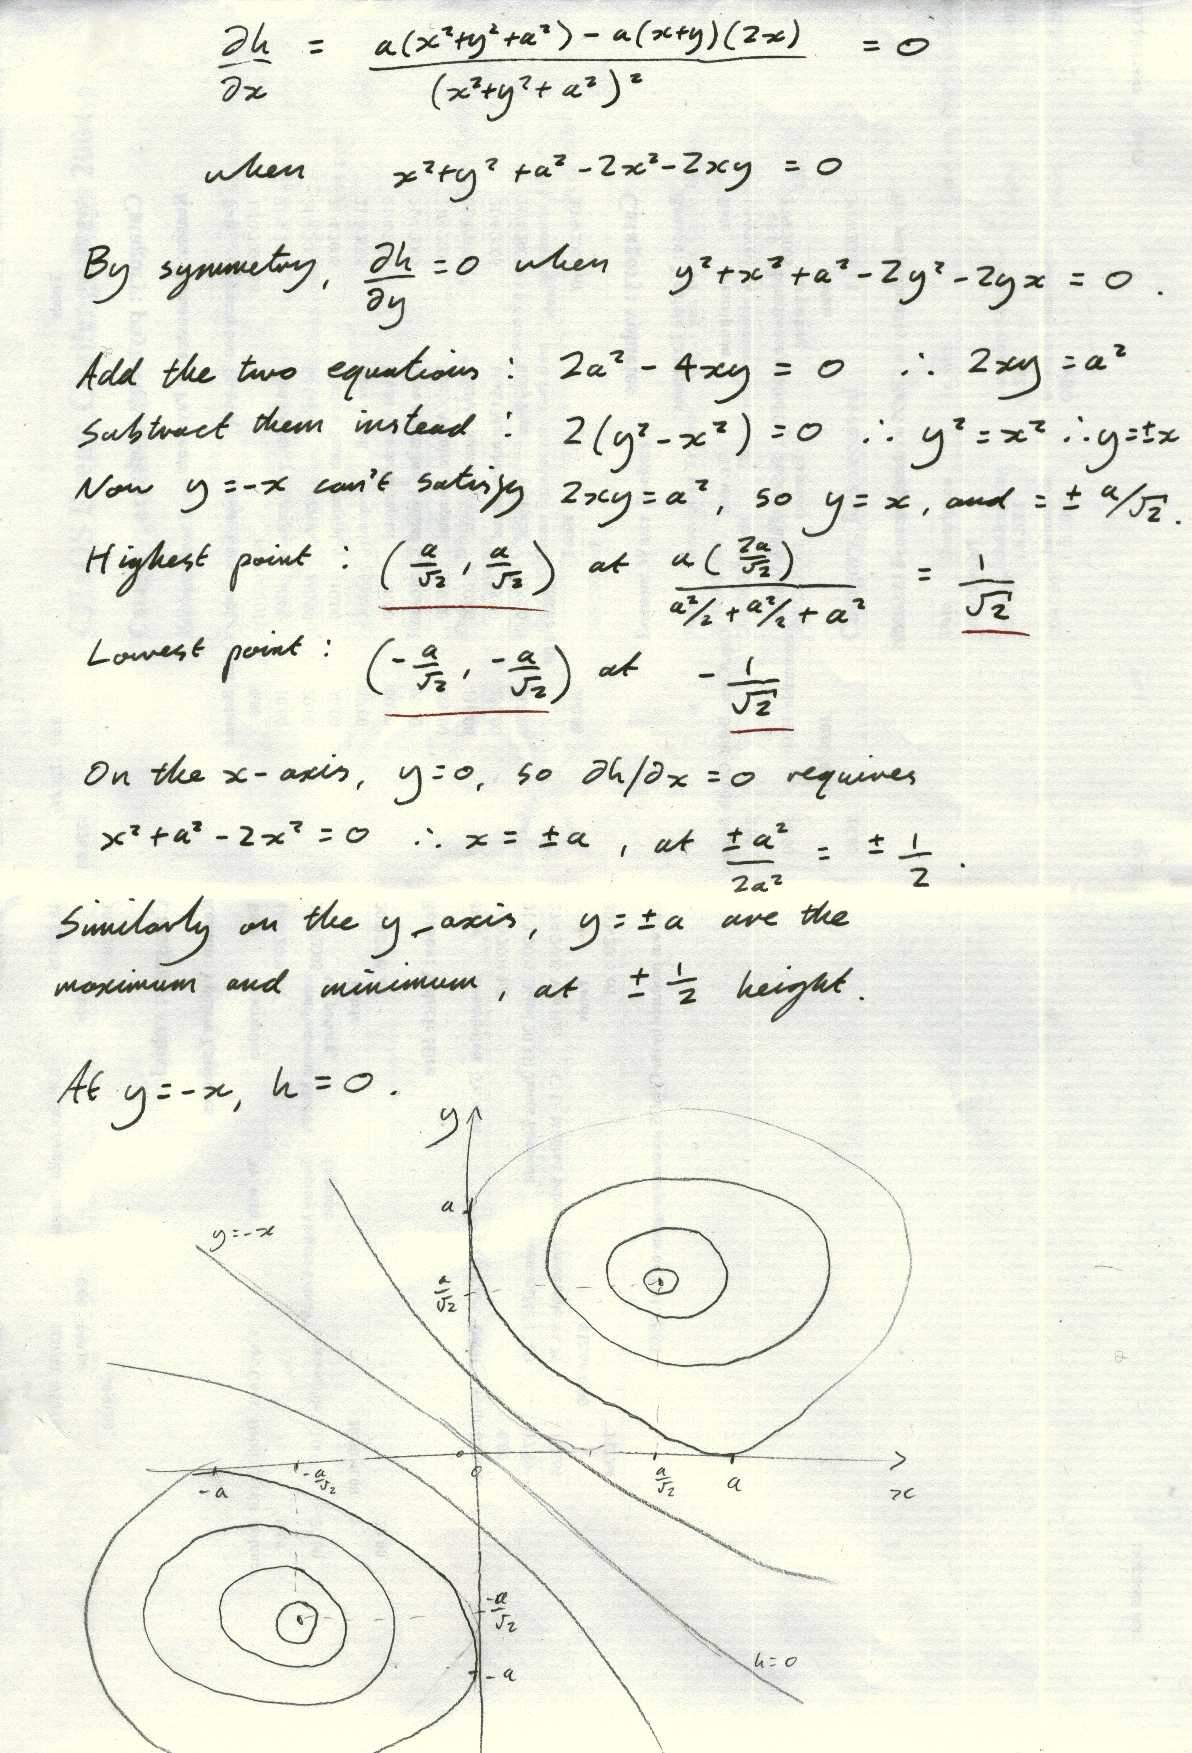 ∂h/∂x = (a(x²+y²+a²) - a(x+y)(2x))/(x²+y²+a²)² = 0
when x²+y²+a²-2x²-2xy = 0
By symmetry, ∂h/∂y = 0 when y²+x²+a²-2y²-2yx = 0.
Add the two equations: 2a² - 4xy = 0 ∴ 2xy = a²
Subtract them instead: 2(y²-x²) = 0 ∴ y² = x² ∴ y=±x
Now y=-x can't satisfy 2xy=a², so y=x, and = ± a/√2.
Highest point: (a/√2, a/√2) at a(2a/√2)/(a²/2+a²/2+a²) = 1/√2
Lowest point: (-a/√2, -a/√2) at -1/√2
On the x-axis, y=0, so ∂h/∂x = 0 requires
x²+a²-2x² = 0 ∴ x = ±a, at ±a²/2a² = ±1/2.
Similarly on the y-axis, y=±a are the
maximum and minimum, at ±1/2 height.
At y=-x, h=0.
y
a
y=-x
a/√2
0
0
-a
-a/√2
a/√2
a
x
-a/√2
-a
h=0